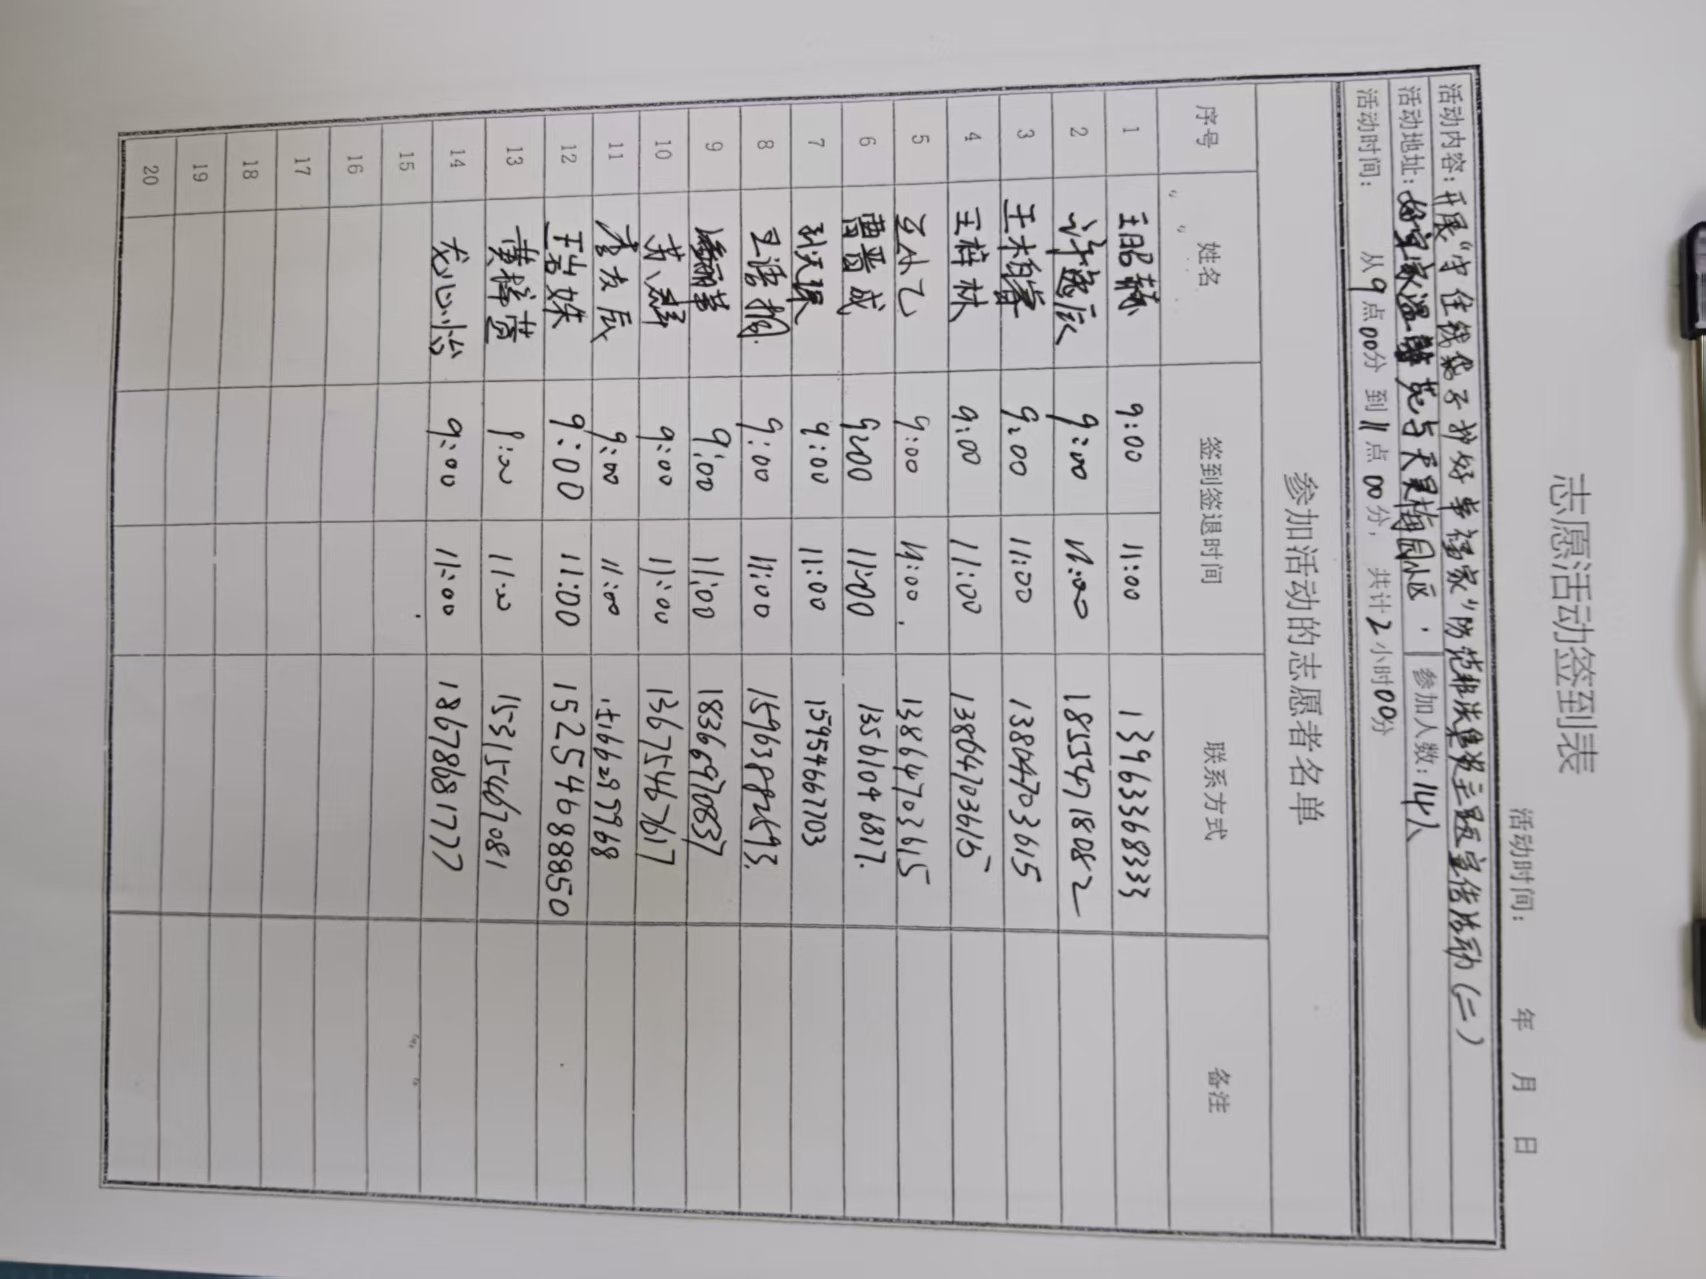 志愿活动签到表
活动时间： 年 月 日
活动内容：开展“守住钱袋子 护好幸福家”防范非法集资主题宣传活动（二）
活动地址： 苑与天 梅园小区 参加人数：14人
活动时间： 从9点00分 到11点00分，共计2小时00分
参加活动的志愿者名单
序号 姓名 签到签退时间 联系方式 备注
1 9:00 11:00 13963368333
2 许逸辰 9:00 11:00 185534718082
3 王柏睿 9:00 11:00 13864703615
4 王梓林 9:00 11:00 13864703615
5 9:00 11:00 13864703615
6 曹晋成 9:00 11:00 13561046817
7 9:00 11:00 15954667703
8 9:00 11:00 15963882593
9 9:00 11:00 18366970837
10 9:00 11:00 13675467617
11 李友辰 9:00 11:00
12 9:00 11:00 15254688850
13 黄梓萱 9:00 11:00 15315467081
14 尤心怡 9:00 11:00 18678681777
15
16
17
18
19
20